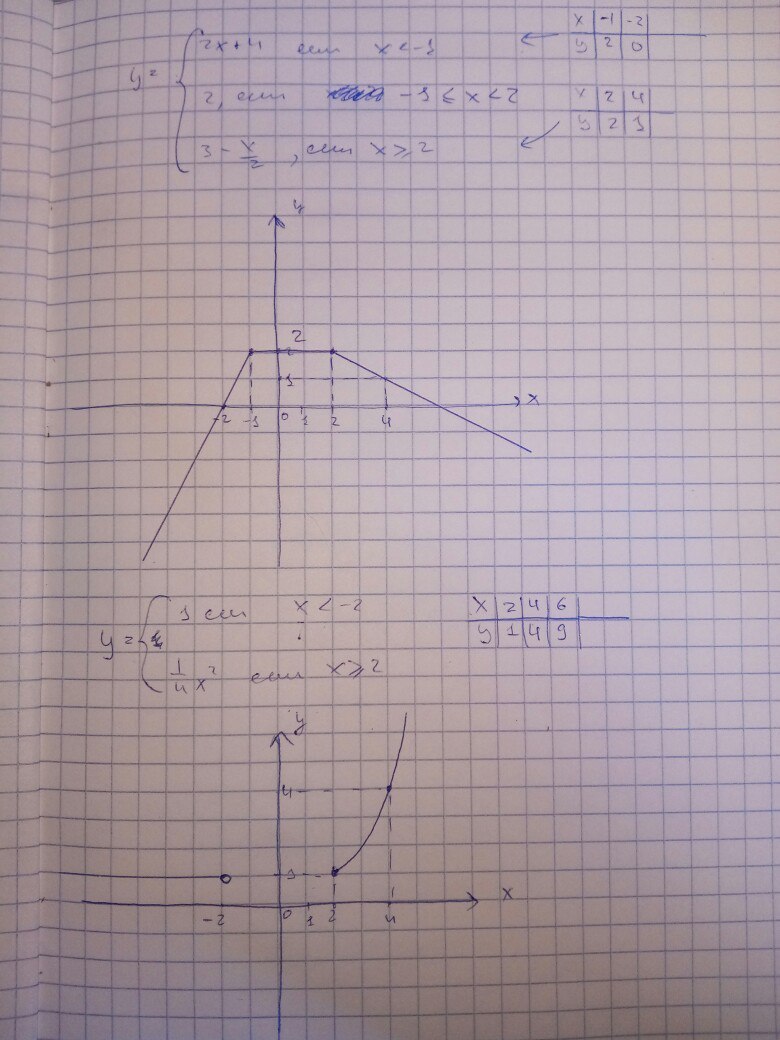 y = { 2x+4 если x < -1
2, если -1 ≤ x < 2
3 - x/2, если x ≥ 2
x -1 -2
y 2 0
x 2 4
y 2 1
y
2
2
1
-2 -1 0 1 2 4 x
y = { 1 если x < -2
1/4 x² если x ≥ 2
x 2 4 6
y 1 4 9
y
4
1
x
-2 0 1 2 4